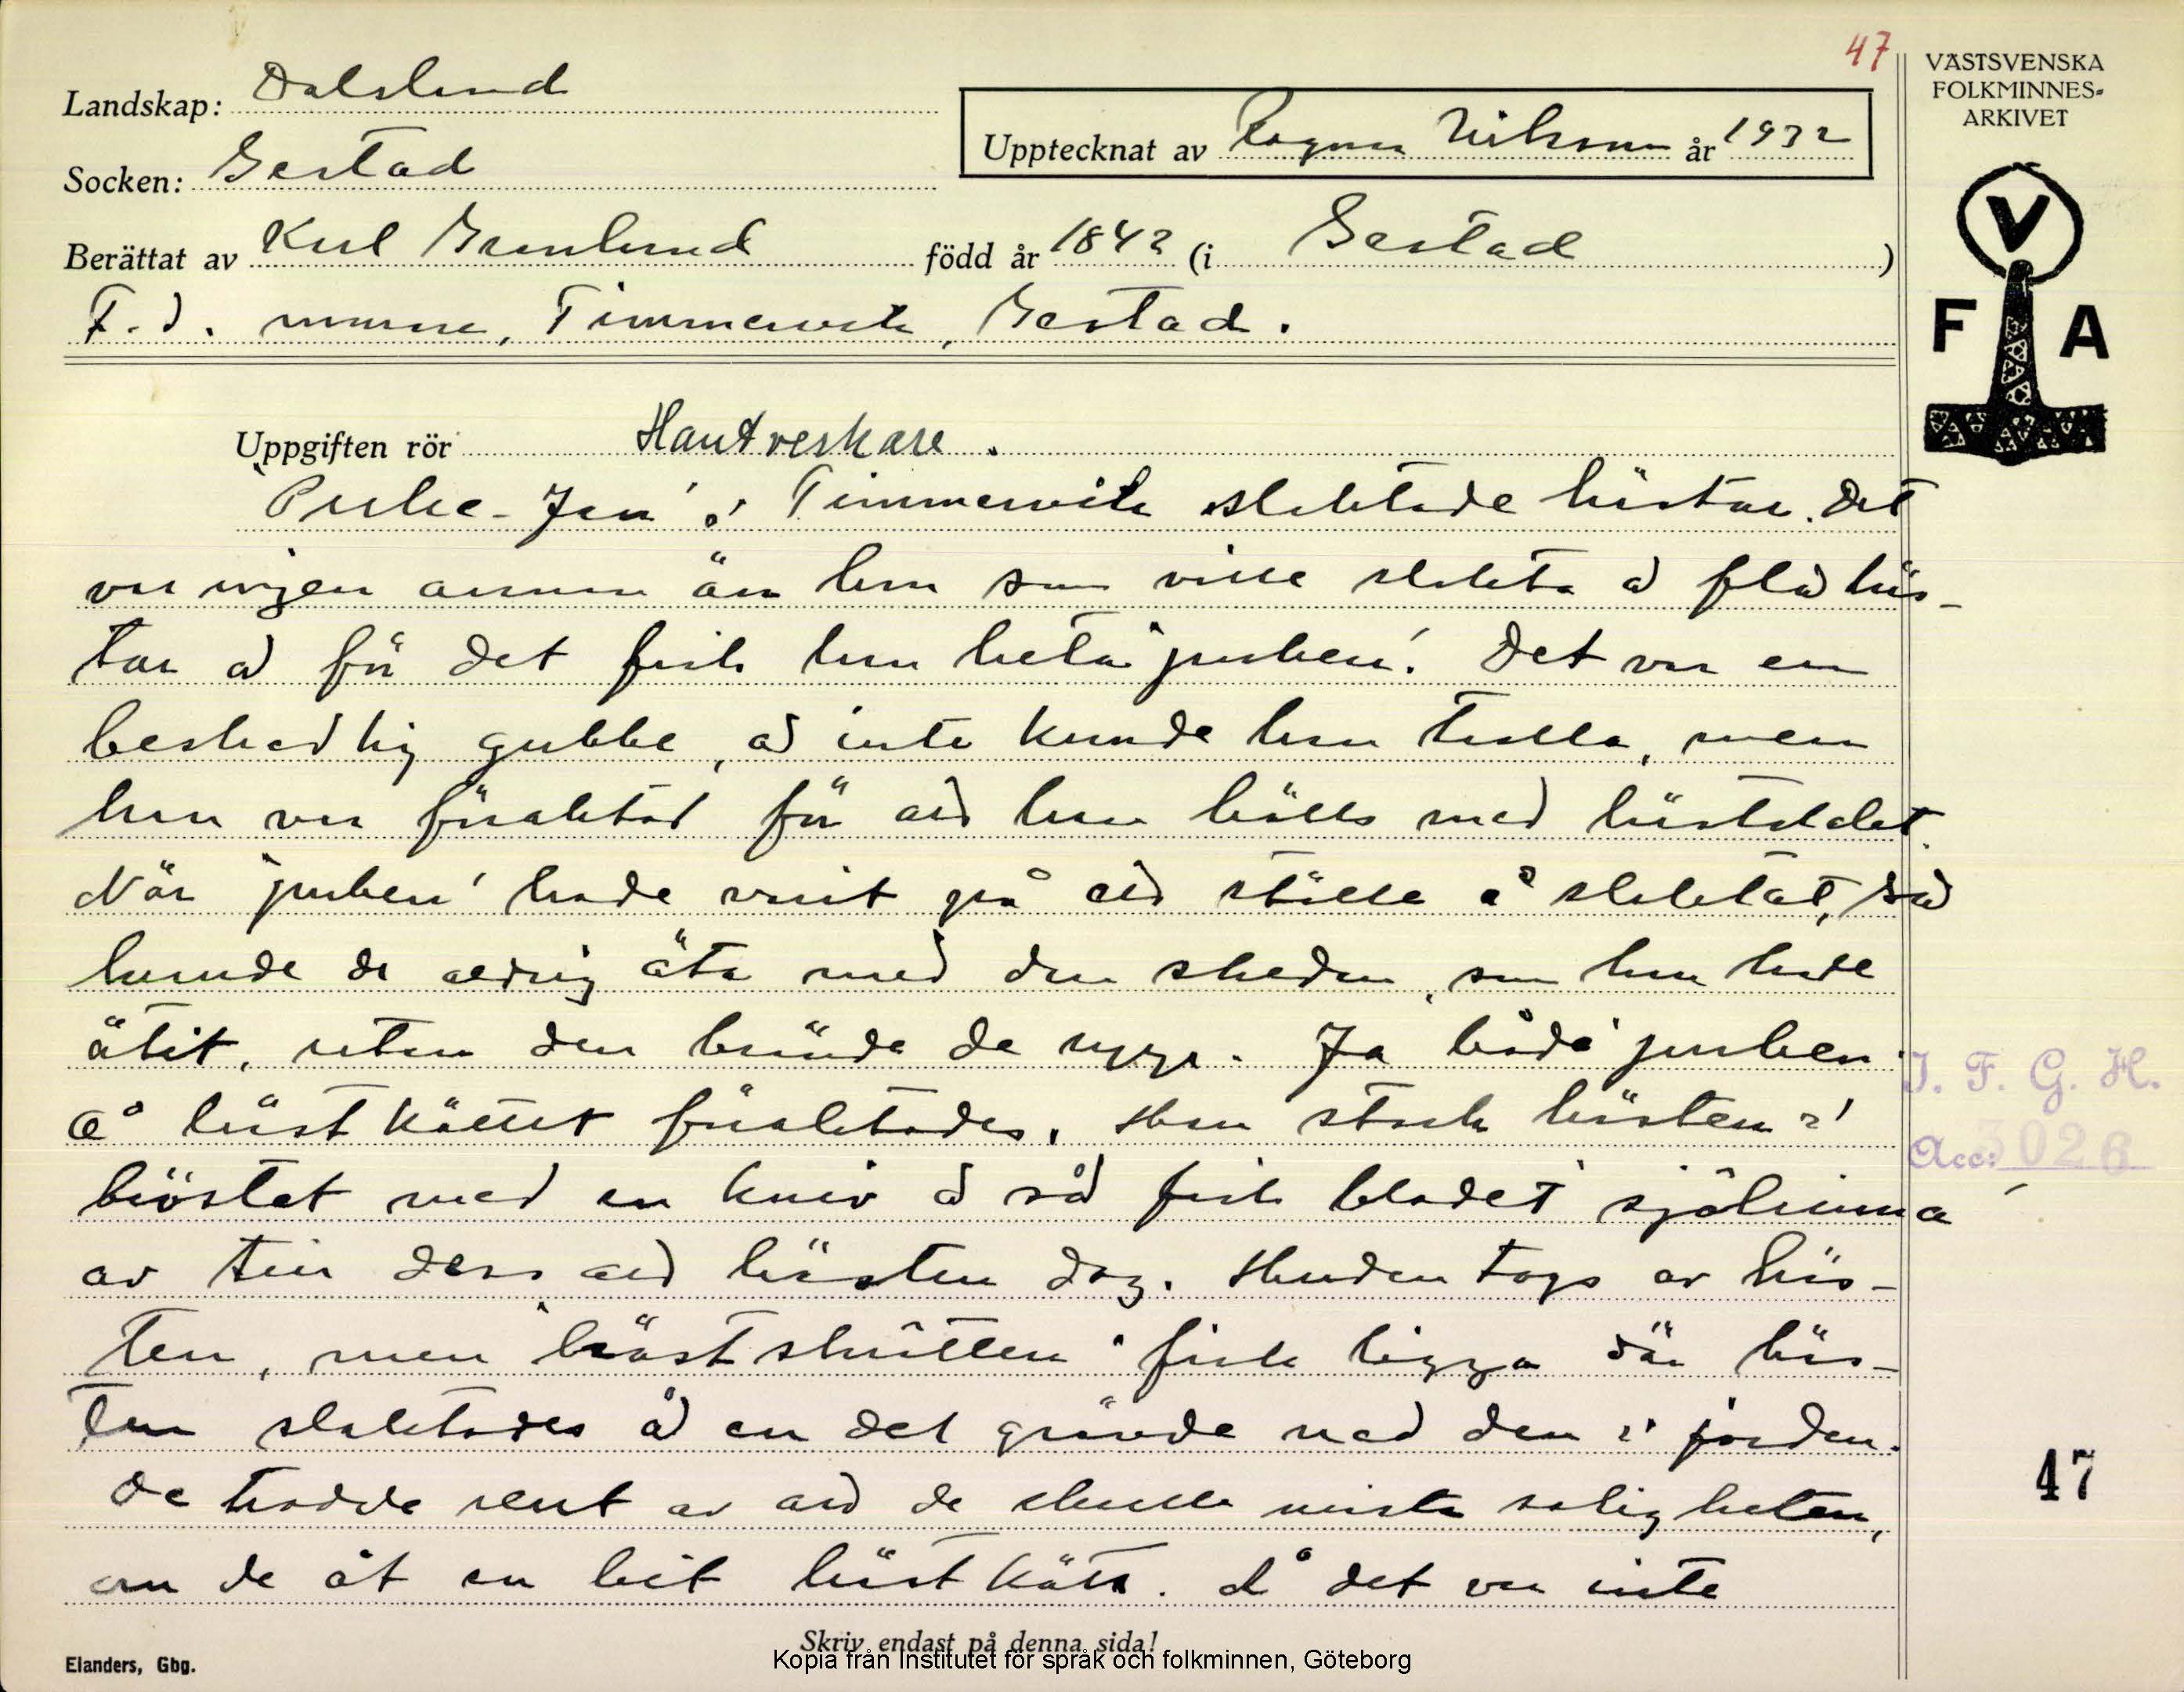 47
Landskap: Dalsland
Socken: Gestad
Upptecknat av Ragnar Nilsson år 1932
VÄSTSVENSKA
FOLKMINNES-
ARKIVET
V
F A
Berättat av Karl Granlund född år 1842 (i Gestad)
F.d. Timmervik, Gestad.
Uppgiften rör Hantverkare.
'Purke-Jan' i Timmervik slaktade hästar. Det
var ingen annan än han som ville slakta å flå häs-
tar å för det fick han heta 'purken'. Det var en
beskedlig gubbe, å inte kunde han trolla, men
han var föraktad för att han hölls med hästslakt.
När 'purken' hade varit på ett ställe å slaktat, så
kunde de aldrig äta med den skeden, som han hade
ätit, utan den brände de upp. Ja både 'purken'
å hästköttet föraktades. Han stack hästen i
bröstet med en kniv å så fick blodet självrinna
av tills dess att hästen dog. Huden togs av häs-
ten, men 'hästskrotten' fick ligga där häs-
ten slaktades å en del grävde ned den i jorden.
De trodde rent av att de skulle mista saligheten,
om de åt en bit hästkött. Å det var inte
I. F. G. H.
Acc: 3026
47
Skriv endast på denna sida!
Elanders, Gbg.
Kopia från Institutet för språk och folkminnen, Göteborg